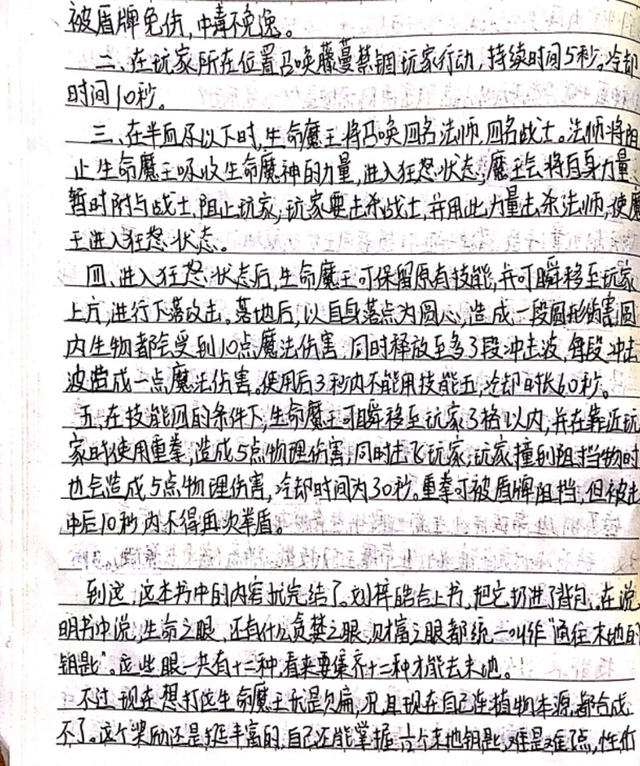 被盾牌免伤，中毒不免逸。
二、在玩家所在位置召唤藤蔓禁锢玩家行动，持续时间5秒。冷却
时间10秒。
三、在半血及以下时，生命魔王将召唤四名法师，四名战士。法师将阻
止生命魔王吸收生命魔神的力量，进入狂怒状态；魔王会将自身力量
暂时附与战士，阻止玩家，玩家要击杀战士，并用此力量击杀法师，使魔
王进入狂怒状态。
四、进入狂怒状态后，生命魔王可保留原有技能，并可瞬移至玩家
上方，进行下落攻击。落地后，以自身落点为圆心，造成一段圆形伤害，圆
内生物都会受到10点魔法伤害，同时释放至多3段冲击波，每段冲击
波造成一点魔法伤害。使用后3秒内不能用技能五，冷却时长60秒。
五、在技能四的条件下，生命魔王可瞬移至玩家3格以内，并在靠近玩
家时使用重拳，造成5点物理伤害，同时击飞玩家；玩家撞到阻挡物时
也会造成5点物理伤害，冷却时间为30秒。重拳可被盾牌阻挡，但被击
中后10秒内不得再次举盾。
到这，这本书中的内容就完结了。刘梓皓合上书，把它扔进了背包。在说
明书中说，生命之眼，还有什么贪婪之眼、财富之眼都统一叫作“通往末地的
钥匙”。这些眼一共有十二种，看来要集齐十二种才能去末地。
不过，现在想打这生命魔王无是欠扁，况且现在自己连植物本源都合成
不了。这个奖励还是挺丰富的，自己还能掌握六个末地钥匙，难是难了点，性价